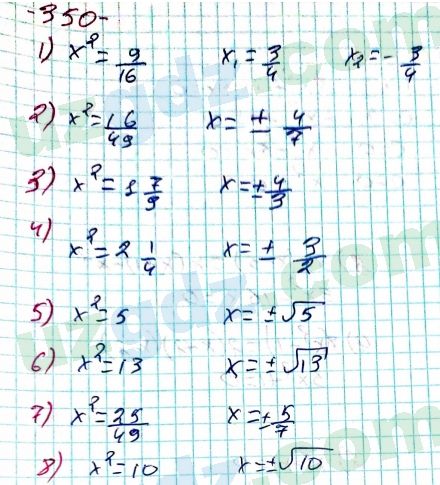 -350-
1) x² = 9/16   x₁ = 3/4   x₂ = -3/4
2) x² = 16/49   x = ± 4/7
3) x² = 1 7/9   x = ± 4/3
4) x² = 2 1/4   x = ± 3/2
5) x² = 5   x = ±√5
6) x² = 13   x = ±√13
7) x² = 25/49   x = ± 5/7
8) x² = 10   x = ±√10